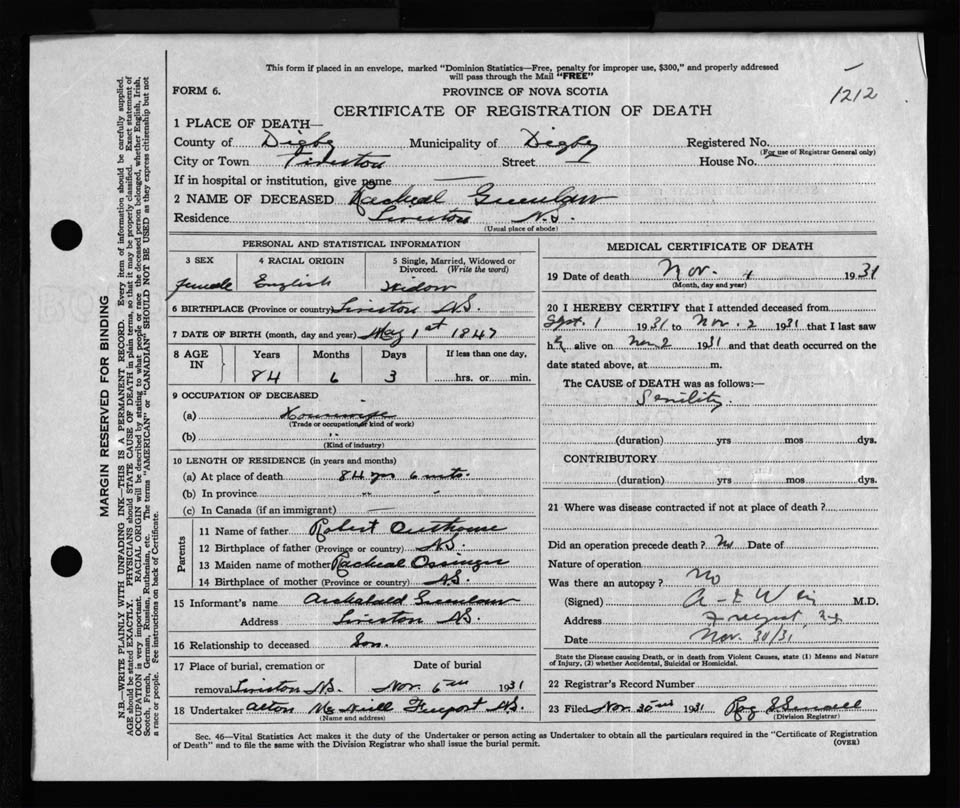 This form if placed in an envelope, marked "Dominion Statistics—Free, penalty for improper use, $300," and properly addressed
will pass through the Mail "FREE"
FORM 6. PROVINCE OF NOVA SCOTIA
1212
CERTIFICATE OF REGISTRATION OF DEATH
1 PLACE OF DEATH—
County of Digby Municipality of Digby Registered No.
(For use of Registrar General only)
City or Town Tiverton Street — House No.
If in hospital or institution, give name —
2 NAME OF DECEASED Racheal Greenlaw
Residence Tiverton N.S.
(Usual place of abode)
PERSONAL AND STATISTICAL INFORMATION
3 SEX 4 RACIAL ORIGIN 5 Single, Married, Widowed or
Divorced. (Write the word)
female English Widow
6 BIRTHPLACE (Province or country) Tiverton N.S.
7 DATE OF BIRTH (month, day and year) May 1st 1847
8 AGE IN Years Months Days If less than one day,
84 6 3 hrs. or min.
9 OCCUPATION OF DECEASED
(a) Housewife
(Trade or occupation or kind of work)
(b) "
(Kind of industry)
10 LENGTH OF RESIDENCE (in years and months)
(a) At place of death 84 yrs 6 mts.
(b) In province " "
(c) In Canada (if an immigrant) —
Parents
11 Name of father Robert Outhouse
12 Birthplace of father (Province or country) N.S.
13 Maiden name of mother Racheal Ossinger
14 Birthplace of mother (Province or country) N.S.
15 Informant's name Archabald Greenlaw
Address Tiverton N.S.
16 Relationship to deceased Son.
17 Place of burial, cremation or Date of burial
removal Tiverton N.S. Nov. 6th 1931
18 Undertaker Alton McNeill Freeport N.S.
(Name and address)
MEDICAL CERTIFICATE OF DEATH
19 Date of death Nov. 4 1931
(Month, day and year)
20 I HEREBY CERTIFY that I attended deceased from
Sept. 1 1931 to Nov. 2 1931 that I last saw
her alive on Nov 2 1931 and that death occurred on the
date stated above, at m.
The CAUSE of DEATH was as follows:—
Senility.
(duration) yrs mos dys.
CONTRIBUTORY
(duration) yrs mos dys.
21 Where was disease contracted if not at place of death?
Did an operation precede death? No Date of
Nature of operation
Was there an autopsy? No
(Signed) M.D.
Address Freeport, N.S.
Date Nov. 30/31
State the Disease causing Death, or in death from Violent Causes, state (1) Means and Nature
of Injury, (2) whether Accidental, Suicidal or Homicidal.
22 Registrar's Record Number
23 Filed Nov. 30th 1931
(Division Registrar)
Sec. 46—Vital Statistics Act makes it the duty of the Undertaker or person acting as Undertaker to obtain all the particulars required in the "Certificate of Registration
of Death" and to file the same with the Division Registrar who shall issue the burial permit. (OVER)
MARGIN RESERVED FOR BINDING
N.B.—WRITE PLAINLY WITH UNFADING INK—THIS IS A PERMANENT RECORD. Every item of information should be carefully supplied.
AGE should be stated EXACTLY. PHYSICIANS should STATE CAUSE OF DEATH in plain terms, so that it may be properly classified. Exact statement of
OCCUPATION is very important. RACIAL ORIGIN will be described by stating to what people or race the deceased person belonged, whether English, Irish,
Scotch, French, German, Russian, Ruthenian, etc. The terms "AMERICAN" or "CANADIAN" SHOULD NOT BE USED as they express citizenship but not
a race or people. See instructions on back of Certificate.